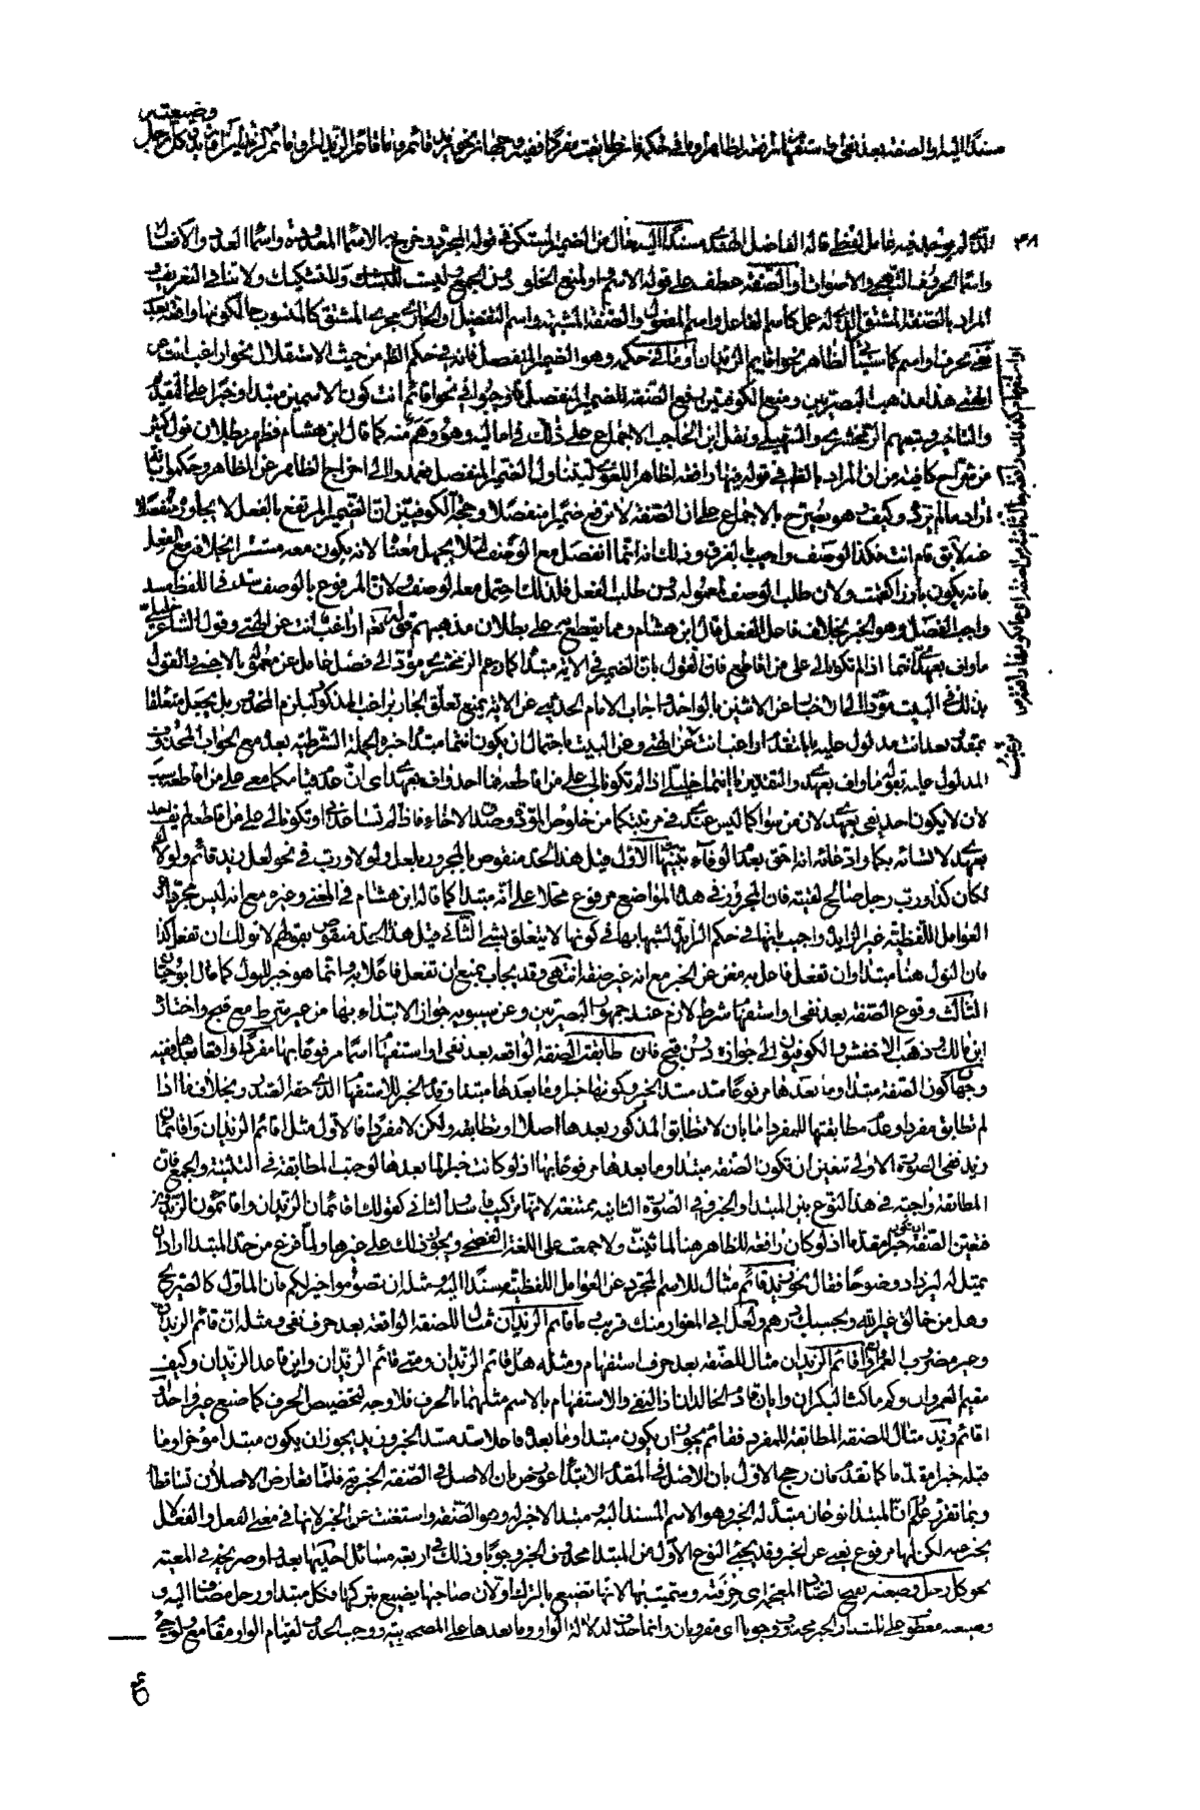 وضيعته
مسندًا اليه او الصفة بعد نفى او استفهام رافعة لظاهر او ما فى حكمه فان طابقت مفردًا ففيه وجهان نحو زيد قائم وما قائم الزيدان او قائم الزيدان او أقائم زيد وكل رجل
الذى لم يوجد فيه عامل لفظى قاله الفاضل الهندى مسندًا اليه حال من الضمير المستكن فى قوله المجرد وخرج به الاسماء المعدودة واسماء العدد والافعال
واسماء الحروف التهجى والاصوات او الصفة عطف على قوله الاسم او لمنع الخلو دون الجمع ليست للشك والتشكيك ولا تنافى التعريف و
المراد بالصفة المشتق الذى له عمل كاسم الفاعل واسم المفعول والصفة المشبهة واسم التفضيل والجارى مجرى المشتق كالمنسوب حال كونها واقعة بعد
نفى بحرف او اسم كما سيأتى الظاهر نحو اقائم الزيدان او ما فى حكمه وهو الضمير المنفصل فانه فى حكم الظاهر من حيث الاستقلال نحو اراغب انت عن
الهتى هذا مذهب البصريين ومنع الكوفيون رفع الصفة للضمير المنفصل فاوجبوا فى نحو اقائم انت كون الاسمين مبتدا وخبرا على التقديم
والتاخير وتبعهم الزمخشرى والسهيلى ونقل ابن الحاجب الاجماع على ذلك فى اماليه وهو وهم منه كما قال ابن هشام فظهر بطلان قول كثير
من شراح كافيته من ان المراد بالظاهر فى قوله فيها رافعة لظاهر اللغوى ليتناول الضمير المنفصل فعمدوا الى اخراج الظاهر عن الظاهر وحكموا بانه
اراد ما لم يرد وكيف وهو يصرح بالاجماع على ان الصفة لا ترفع ضميرا منفصلا وحجة الكوفيين ان الضمير المرتفع بالفعل لا يجاوره منفصلا
عنه لا يق قام انت فكذا الوصف واجيب بالفرق وذلك انه انما انفصل مع الوصف لئلا يجهل معناه لانه يكون معه مستترا بخلافه مع الفعل
فانه يكون بارزا كقمت ولان طلب الوصف لمعموله دون طلب الفعل فلذلك احتمل معه الوصف ولان المرفوع بالوصف سد فى اللفظ مسد
واجب الفصل وهو الخبر بخلاف فاعل الفعل قال ابن هشام ومما يقطع به على بطلان مذهبهم قوله تعالى اراغب انت عن الهتى وقول الشاعر خليلى
ما واف بعهدى انتما اذا لم تكونا لى على من اقاطع فان القول بان الضمير فى الاية مبتدا كما زعم الزمخشرى مؤد الى فصل العامل عن معموله بالاجنبى والقول
بذلك فى البيت مؤد الى الاخبار عن الاثنين بالواحد واجاب الامام الحديثى عن الاية بمنع تعلق الجار براغب المذكور ليلزم المحذور بل يجعل متعلقا
بمقدر بعد انت مدلول عليه بالمتقدم اى اراغب انت راغب عن الهتى وعن البيت باحتمال ان يكون انتما مبتدا خبره الجملة الشرطية بعده مع الجواب المحذوف
المدلول عليه بقوله ما واف بعهدى والتقدير انتما خليلى اذا لم تكونا لى على من اقاطعه فما احد واف بعهدى
لان لا يكون احد يفى بعهد لان من سواكما ليس عندى فى مرتبتكما من خلوص المودة وصدق الاخاء فاذا لم تساعدانى او تكونا لى على من اقاطع لم يف احد
بعهد لاتسائه بكما وادعائه انه احق بعدم الوفاء تنبيهان الاول قيل هذا الحد منقوض بالمجرور بلعل ولولا ورب فى نحو لعل زيد قائم ولولاه
لكان كذا ورب رجل صالح لقيته فان المجرور فى هذه المواضع مرفوع محلا على انه مبتدا كما قاله ابن هشام فى المغنى وغيره مع انه ليس مجردا عن
العوامل اللفظية غير الزايدة واجيب بانها فى حكم الزايد لشبهها بها فى كونها لا يتعلق بشئ الثانى قيل هذا الحد منقوض بقولهم لا نولك ان تفعل كذا
فان النول هنا مبتدا وان تفعل فاعل به مغن عن الخبر مع انه غير صفة انتهى وقد يجاب بمنع ان تفعل فاعلا به وانما هو خبر للنول كما قال ابو حيان
الثالث وقوع الصفة بعد نفى او استفهام شرط لازم عند جمهور البصريين وعن سيبويه جواز الابتداء بها من غير شرط مع قبح واختاره
ابن مالك وذهب الاخفش والكوفيون الى جوازه دون قبح فان طابقت الصفة الواقعة بعد نفى او استفهام اسما مرفوعا بها مفردا واقعا بعدها ففيه
وجهان كون الصفة مبتدا وما بعدها مرفوعا سد مسد الخبر وكونها خبرا وما بعدها مبتدا وقدم الخبر للاستفهام الذى حقه الصدر وبخلاف ما اذا
لم تطابق مفردا وعدم مطابقتها للمفرد اما بان لا تطابق المذكور بعدها اصلا او تطابقه ولكن لا مفردا فالاول مثل اقائم الزيدان واقائمان
زيد ففى الصورة الاولى تتعين ان تكون الصفة مبتدا وما بعدها مرفوعا بها اذ لو كانت خبرا لما بعدها لوجب المطابقة فى التثنية والجمع فان
المطابقة واجبة فى هذا النوع بين المبتدا والخبر وفى الصورة الثانية ممتنعة لانها تركيب فاسد والثانى كقولك اقائمان الزيدان واقائمون الزيدون
فتعين الصفة ان تكون خبرا مقدما اذ لو كان رافعة للظاهر هنا لما ثنيت ولا جمعت على اللغة الفصحى ويجوز ذلك على غيرها ولما فرغ من حد المبتدا اراد ان
يمثل له ليزداد وضوحا فقال نحو زيد قائم مثال للاسم المجرد عن العوامل اللفظية مسندًا اليه ومثله ان تصوموا خير لكم فان المأول كالصريح
وهل من خالق غير الله وبحسبك درهم ولعل ابى المغوار منك قريب وما قائم الزيدان مثال للصفة الواقعة بعد حرف نفى ومثله ان قائم الزيدان
وغير مضروب العمران او اقائم الزيدان مثال للصفة بعد حرف استفهام ومثله هل قائم الزيدان ومتى قائم الزيدان واين قاعد الزيدان وكيف
مقيم العمران وكم ماكث البكران وايان قادم الخالدان اذ النفى والاستفهام بالاسم مثلهما بالحرف فلا وجه لتخصيص الحرف كما صنع غير واحد
اقائم زيد مثال للصفة المطابقة للمفرد فقائم يجوز ان يكون مبتدا وما بعده فاعلا سد مسد الخبر وزيد يجوز ان يكون مبتدا مؤخرا وما
قبله خبرا مقدما كما تقدم فان رجح الاول بان الاصل فى المقدم الابتداء عورض بان الاصل فى الصفة الخبرية فلما تعارض الاصلان تساقطا
وبما تقرر علم ان المبتدا نوعان مبتدا له خبر وهو الاسم المسند اليه ومبتدا لا خبر له وهو الصفة واستغنت عن الخبر لانها فى معنى الفعل والفعل لا
يخبر عنه لكن لها مرفوع يغنى عن الخبر وقد يجئ النوع الاول من المبتدا محذوف الخبر وجوبا وذلك فى اربعة مسائل احديها بعد واو صريحة فى المعية
نحو كل رجل وضيعته بفتح الضاد المعجمة اى حرفته وسميت بها لانها تضيع بالترك او لان صاحبها يضيع بتركها فكل مبتدا ورجل مضاف اليه و
وضيعته معطوف على المبتدا والخبر محذوف وجوبا اى مقرونان وانما حذف لدلالة الواو وما بعدها على المصحوبية ووجب الحذف لقيام الواو مقام مع